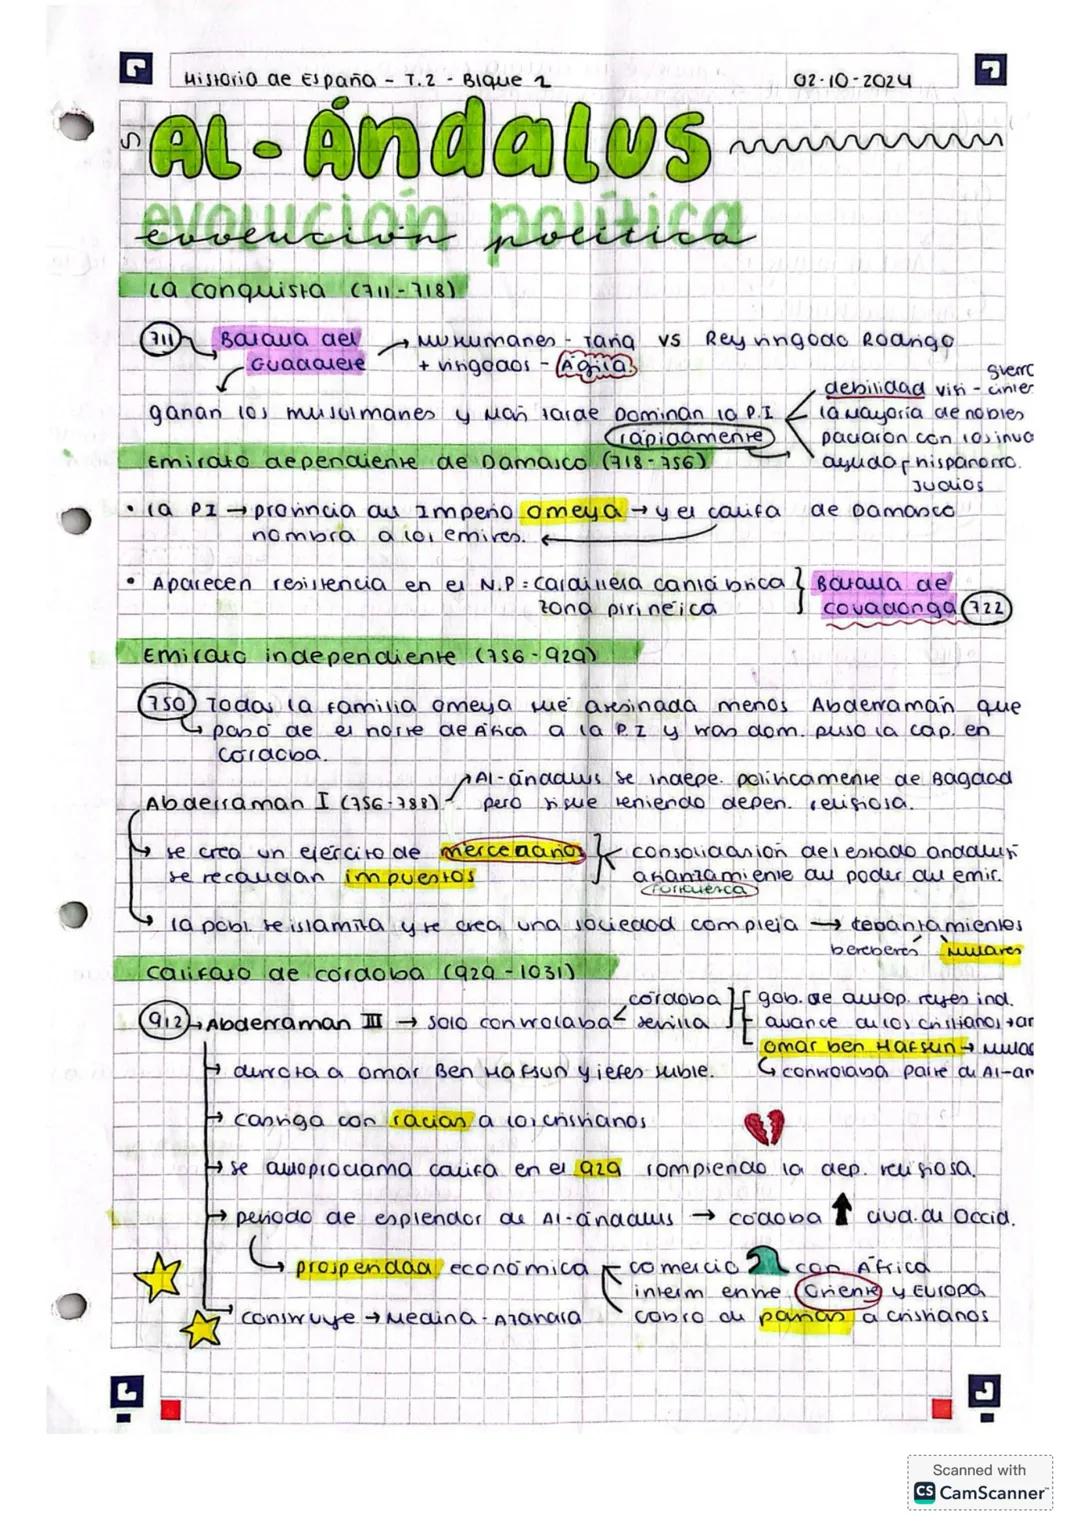 Historia de España - T.2 - Bloque 2
02-10-2024
AL-Ándalus
evolución política
evolución política
La conquista (711-718)
711 Batalla del Guadalete → Musulmanes - Tariq vs Rey visigodo Rodrigo
+ visigodos - Agila
ganan los musulmanes y más tarde Dominan la P.I rápidamente
debilidad visi -
la mayoría de nobles
pactaron con los inva
ayuda hispanorro.
Judíos
Emirato dependiente de Damasco (718-756)
• la PI → provincia del Imperio omeya → y el califa de Damasco
nombra a los emires.
• Aparecen resistencia en el N.P: Cordillera cantábrica
zona pirineica
Batalla de
covadonga 722
Emirato independiente (756-929)
750 Todas la familia omeya fué asesinada menos Abderramán que
pasó de el norte de África a la P.I y tras dom. puso la cap. en
Córdoba.
Al-ándalus se indepe. políticamente de Bagdad
Abderraman I (756-788) pero sigue teniendo depen. religiosa.
se crea un ejército de mercedarios
se recaudan impuestos
consolidasión del estado andalusí
afianzamiento del poder del emir.
la pobl. se islamiza y se crea una sociedad compleja → levantamientos
bereberes Muladres
Califato de córdoba (929-1031)
912 → Abderraman III → solo controlaba
córdoba
sevilla
gob. de autop. reyes ind.
avance de los cristianos
omar ben Hafsun →
↳ controlaba parte de Al-an
→ derrota a omar Ben Hafsun y jefes suble.
→ castiga con racias a los cristianos
→ se autoproclama califa en el 929 rompiendo la dep. religiosa.
→ periodo de esplendor de Al-ándalus → códoba ↑ ciud. de Occid.
prosperidad económica
comercio con África
interm entre Oriente y Europa
cobro de parias a cristianos
construye → Medina-Azahara
Scanned with
CS CamScanner™